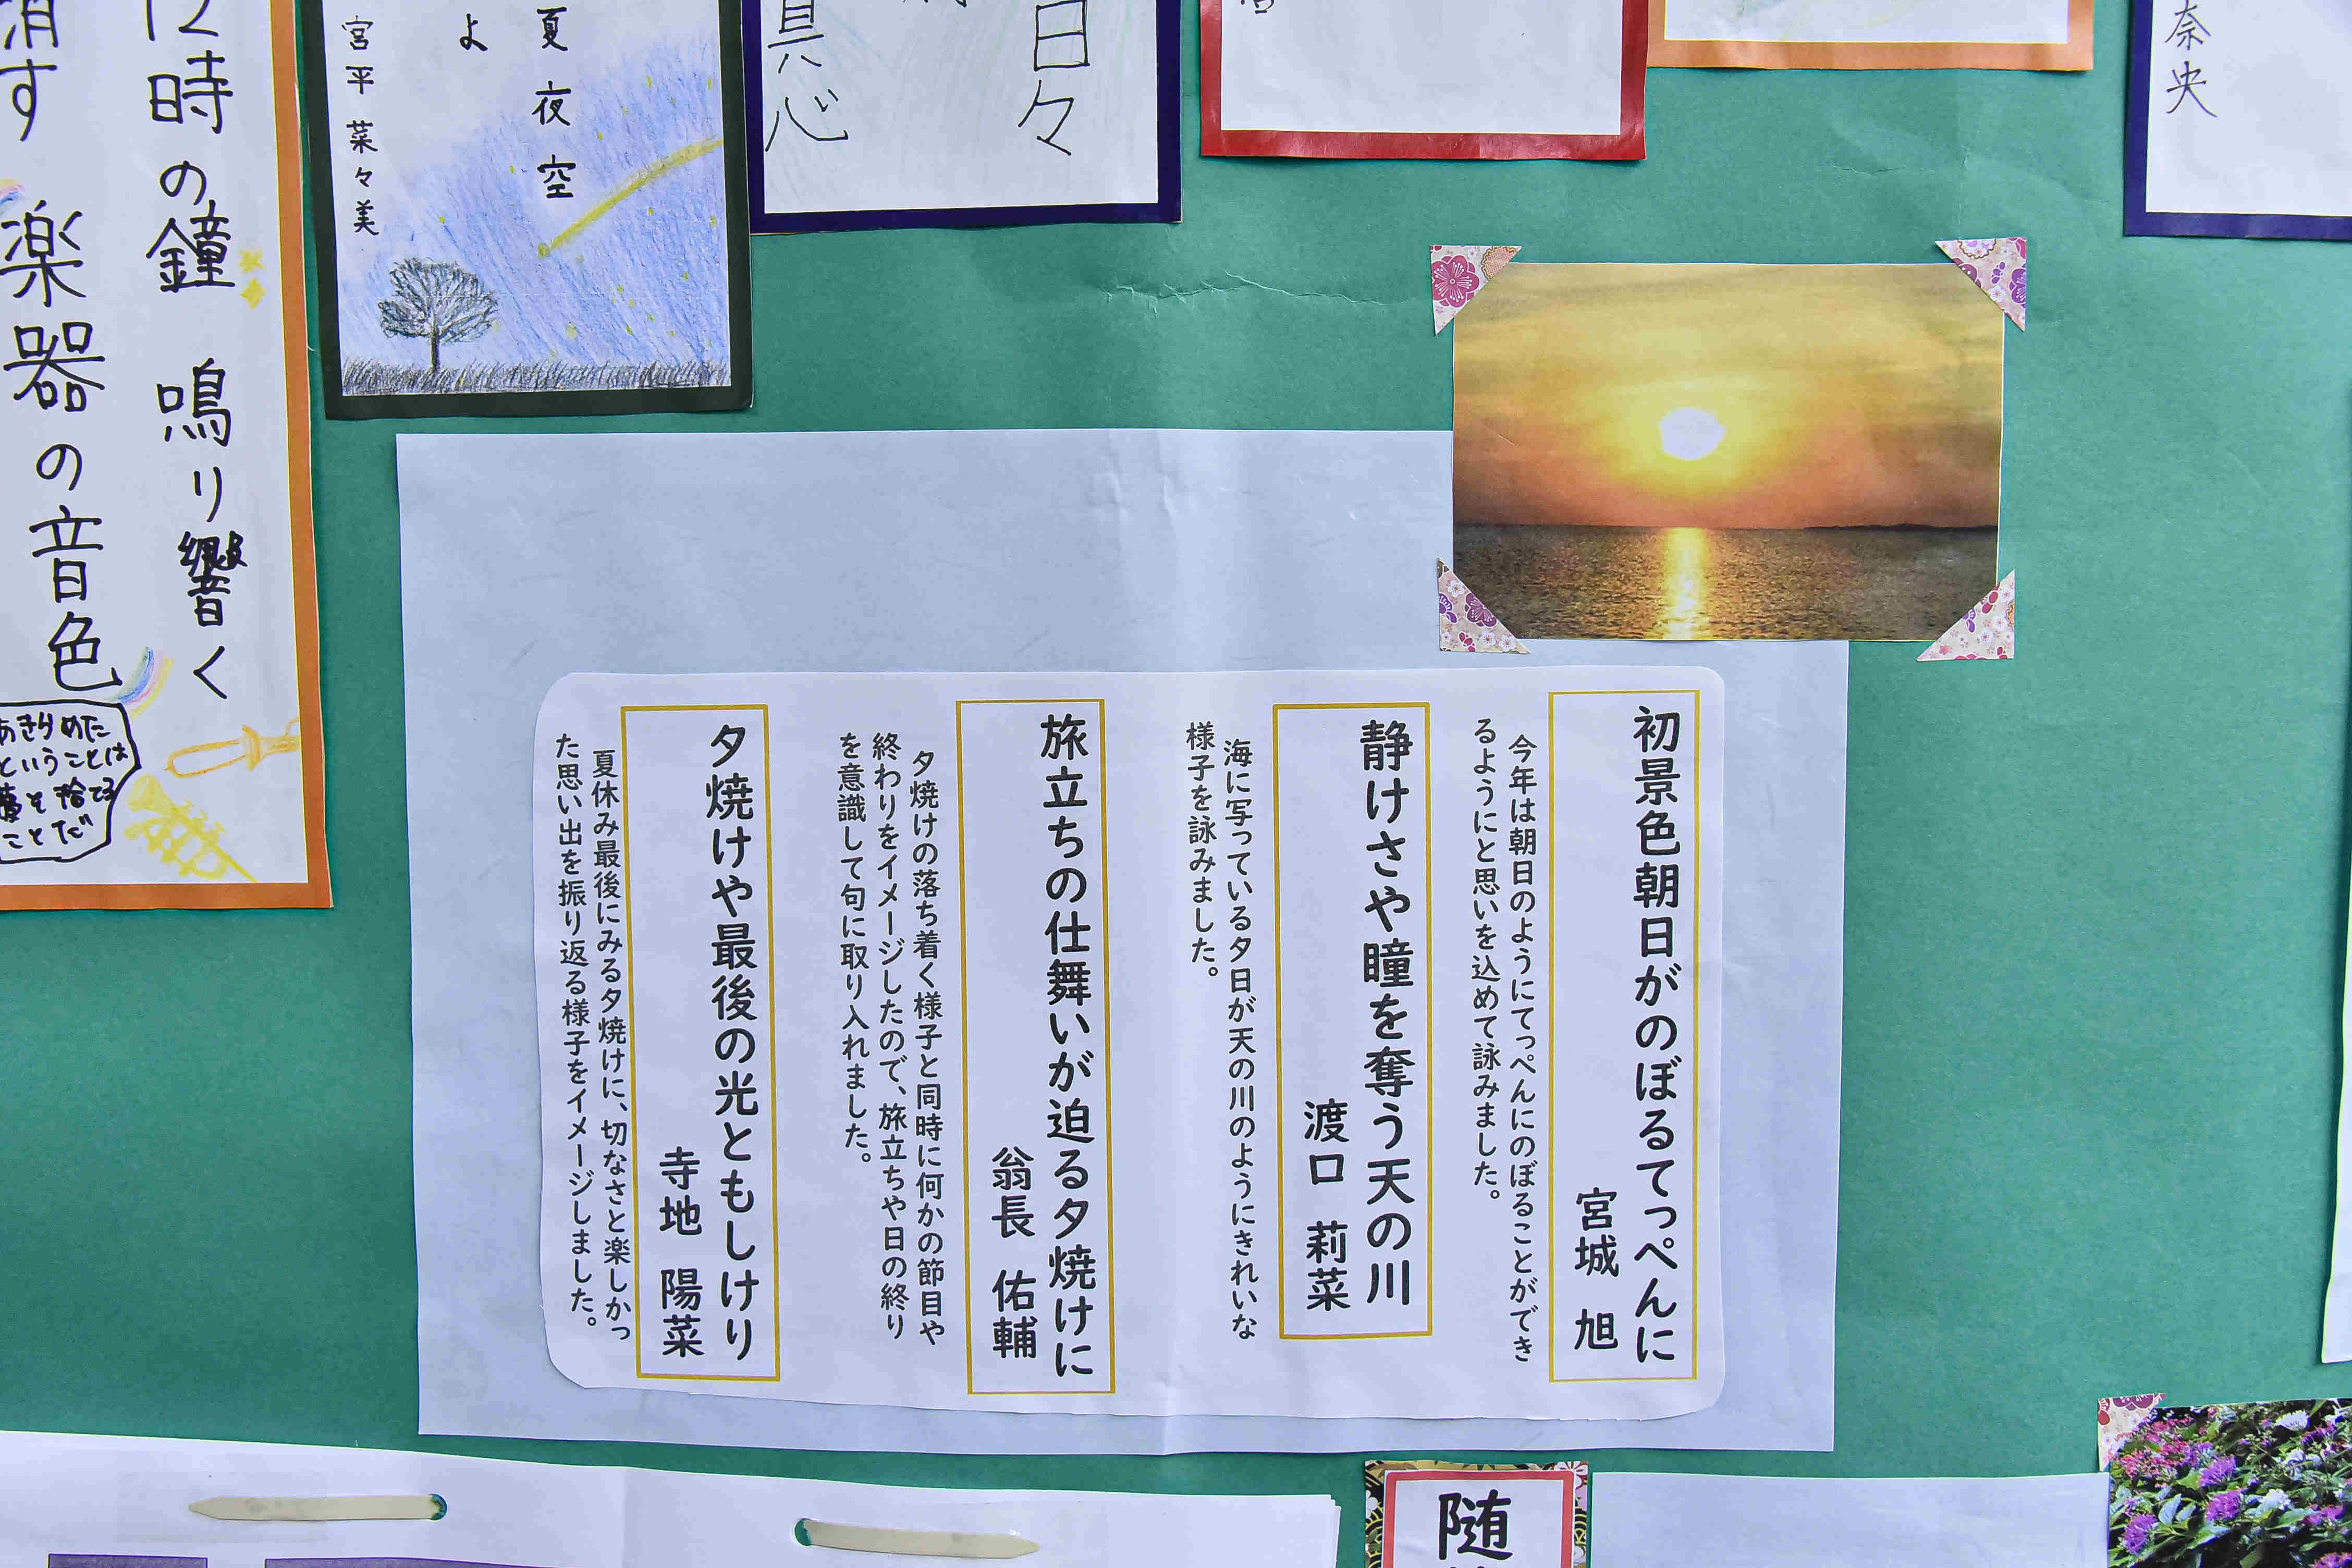 初景色朝日がのぼるてっぺんに
宮城 旭
今年は朝日のようにてっぺんにのぼることができ
るようにと思いを込めて詠みました。
静けさや瞳を奪う天の川
渡口 莉菜
海に写っている夕日が天の川のようにきれいな
様子を詠みました。
旅立ちの仕舞いが迫る夕焼けに
翁長 佑輔
夕焼けの落ち着く様子と同時に何かの節目や
終わりをイメージしたので、旅立ちや日の終り
を意識して句に取り入れました。
夕焼けや最後の光ともしけり
寺地 陽菜
夏休み最後にみる夕焼けに、切なさと楽しかっ
た思い出を振り返る様子をイメージしました。
奈央
日々
心
夏夜空
よ
宮平 菜々美
12時の鐘 鳴り響く
消す 楽器の音色
あきらめた
ということは
夢を捨てる
ことだ
随